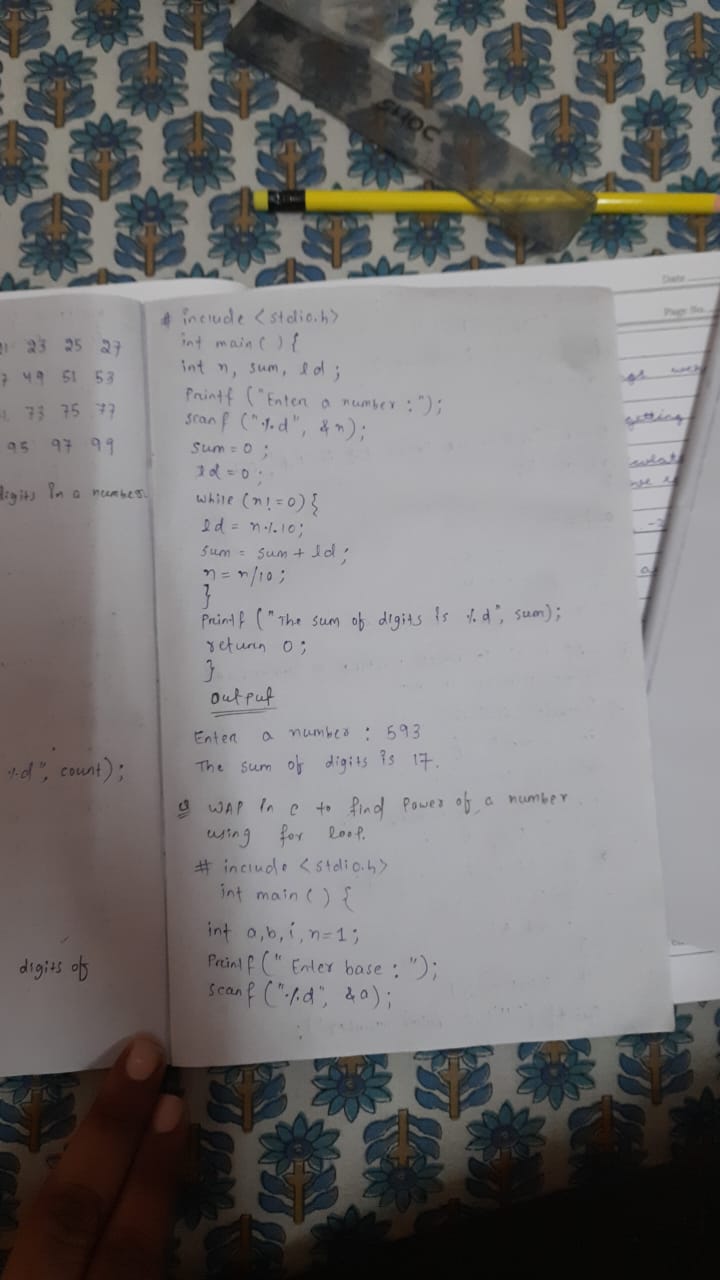 SHOC
Date
Page No.
23 25 27
49 51 53
73 75 77
95 97 99
digits in a number.
%d", count);
digits of
# include <stdio.h>
int main( ) {
int n, sum, ld ;
Printf ("Enter a number :");
scanf ("%d", &n);
sum = 0 ;
ld = 0 ;
while (n! = 0) {
ld = n%10;
sum = sum + ld ;
n = n/10 ;
}
Printf ("The sum of digits is %d", sum);
return 0 ;
}
Output
Enter a number : 593
The sum of digits is 17.
Q WAP in c to find Power of a number
using for loop.
# include <stdio.h>
int main ( ) {
int a,b,i,n=1;
Printf (" Enter base : ");
scanf ("%d", &a);
getting